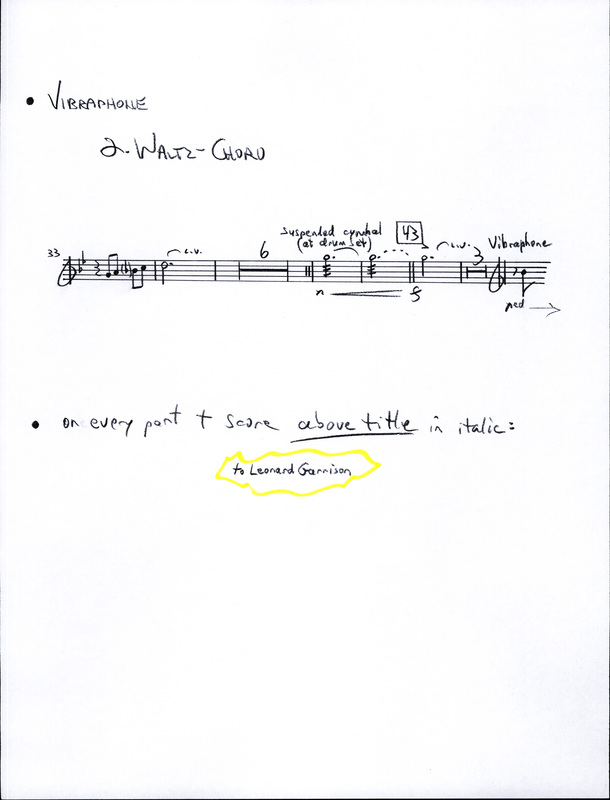 • VIBRAPHONE
2. WALTZ-CHORO
33
l.v.
6
suspended cymbal
(at drum set)
43
l.v.
3
Vibraphone
n
f
ped
• on every part + score above title in italic:
to Leonard Garrison